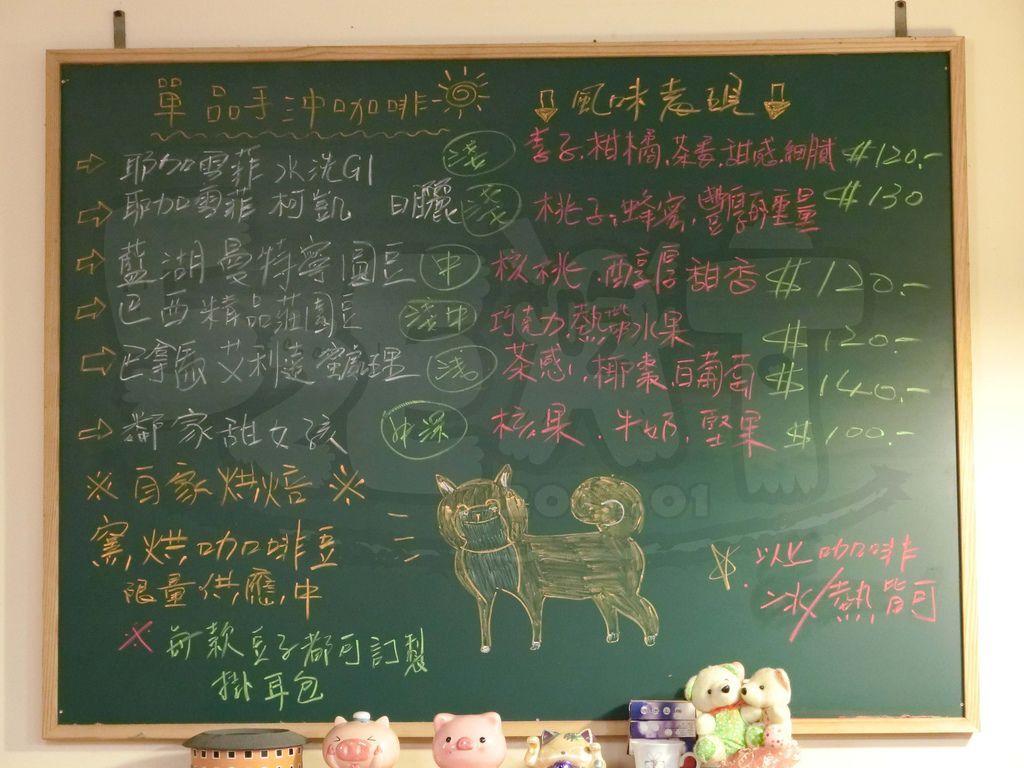 單品手沖咖啡 風味表現
耶加雪菲 水洗G1 淺 李子,柑橘,茶香,甜感,細膩 $120.-
耶加雪菲 柯凱 日曬 淺 桃子,蜂蜜,豐厚的重量 $130
藍湖曼特寧圓豆 中 核桃.酒厚甜香 $120.-
巴西精品莊園豆 淺中 巧克力.熱帶水果 $120.-
巴拿馬 艾利達 蜜處理 淺 茶感,椰棗,白葡萄 $140.-
鄰家甜女孩 中深 核果.牛奶.堅果 $100.-
※自家烘焙※
窯烘咖啡豆
限量供應中
※ 每款豆子都可訂製
掛耳包
以上咖啡
冰/熱皆可